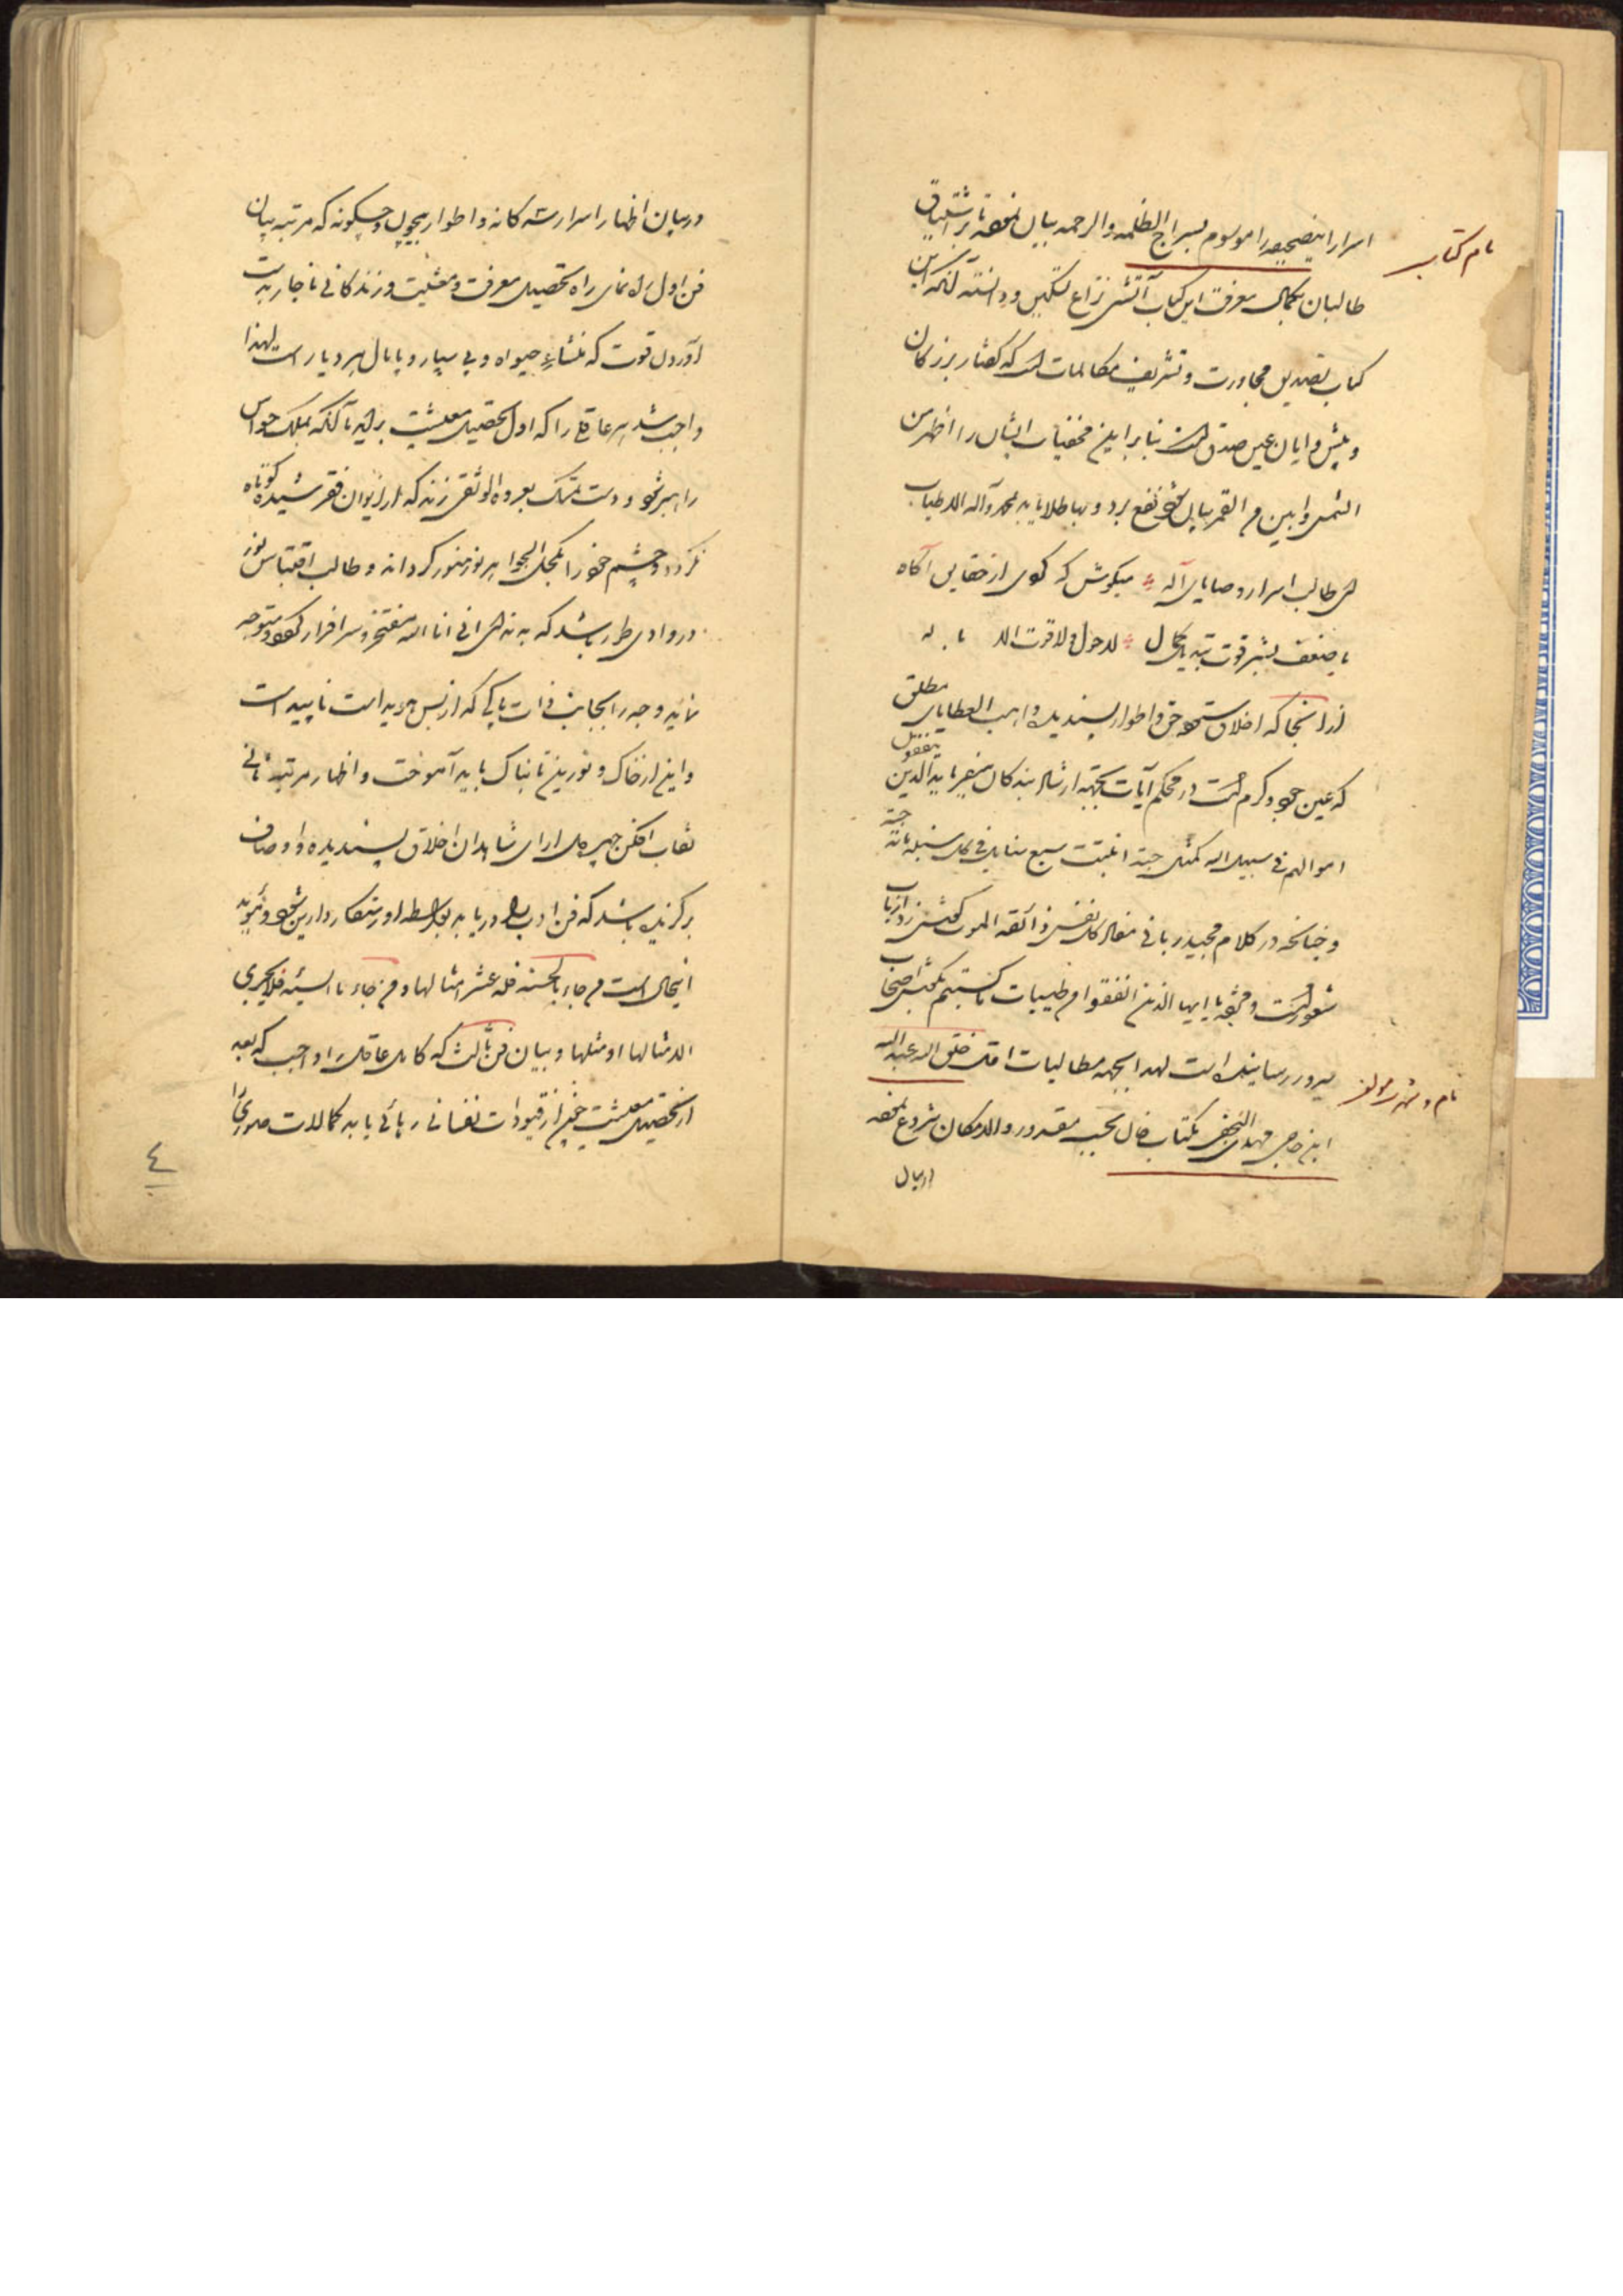 نام کتاب
اسرار اینصحیفه را موسوم بسراج الظلمه والرحمه بیان نموده تا بر اشتیاق
طالبان بکمال معرفت این کتاب آتش نزاع تسکین و دانسته آنکه این
کتاب تصدیق مجاورت و تشریف مکالمات است که گفتار بزرگان
و پیشوایان عین صدق است بنابراین مخفیات ایشان را اظهر من
الشمس و ابین من القمر بیان نفع برد و بها طلا یابد بمحمد و آله الاطیاب
ای طالب اسرار وصایای آله میکوش که کوی از خفایی آگاه
با ضعف بشر قوت تدبیر کمال لاحول ولا قوت الا با له
از انجا که اخلاق ستوده حق و اطوار پسندیده واهب العطایای مطلق
که عین جود و کرم است در محکم آیات بجهته ارشاد بندکان میفرماید الذین ینفقون
اموالهم فی سبیل الله کمثل حبته انبتت سبع سنابل فی کل سنبله مائة حبته
و چنانچه در کلام مجید ربانی مفاد کل نفس ذائقه الموت گوش زد ارباب
شعور است و یا ایها الذین انفقوا من طیبات ما کسبتم بگوش اصحاب
سرور رسانیده است لهذا بجهه مطالبات اقل خلق الله عبد الله
نام و شهرت مولف
ابن حاجی مهدی النجفی بکتاب حال بحسب مقدور والامکان شروع نموده
در بیان
در بیان اظهار اسرار سه کانه و اطوار بیچون و چگونه که مرتبه بیان
فن اول راه نمای راه تحصیل معرفت و معیشت و زندکانی ناچار بدست
آوردن قوت که منشاء حیواة و پی سپار و پایمال هر دیار است لهذا
واجب شد هر عاقلی را که اول تحصیل معیشت براید تا آنکه بملک حواس
راهبر شود و دست تمسک بعروة الوثقی زند که از ایوان فقر شیده کوتاه
نکردد و چشم خود را بکحل الجواهر نور منور کرداند و طالب اقتباس نور
در وادی طور باشد که به ندای انی انا الله مفتخر و سرافراز کردد و متوجه
نماید و جهه را بجانب ذات پاکی که از بس هویداست ناپیداست
و این از خاک و نور زین تابناک باید آموخت و اظهار مرتبه ثانی
نقاب افکن چهره دل ارای شاهدان اخلاق پسندیده و اوصاف
برگزیده باشد که فن ادب را دریابد بواسطه او رستکار دارین شود و مؤید
اینحال است من جاء بالحسنه فله عشر امثالها و من جاء بالسیئه فلا یجزی
الا مثالها او مثلها و بیان فن ثالث که کامل عاقل را واجب که بعد
از تحصیل معیشت خود از قیودات نفسانی رهائی یابد کمالات صوری را
٤